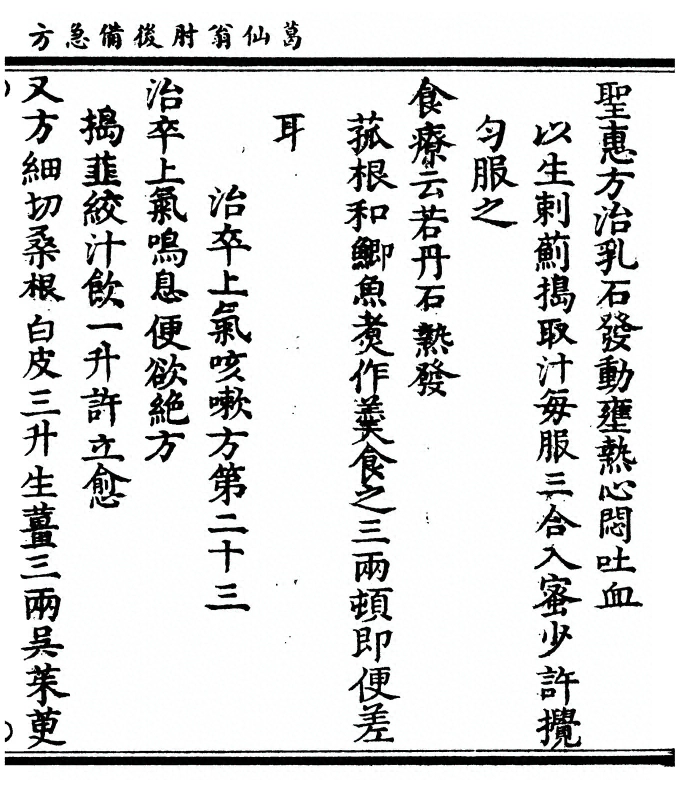 葛仙翁肘後備急方
聖惠方治乳石發動壅熱心悶吐血
以生刺薊搗取汁每服三合入蜜少許攪
勻服之
食療云若丹石熱發
菰根和鯽魚煮作羹食之三兩頓即便差
耳
治卒上氣咳嗽方第二十三
治卒上氣鳴息便欲絕方
搗韭絞汁飲一升許立愈
又方細切桑根白皮三升生薑三兩吳茱萸